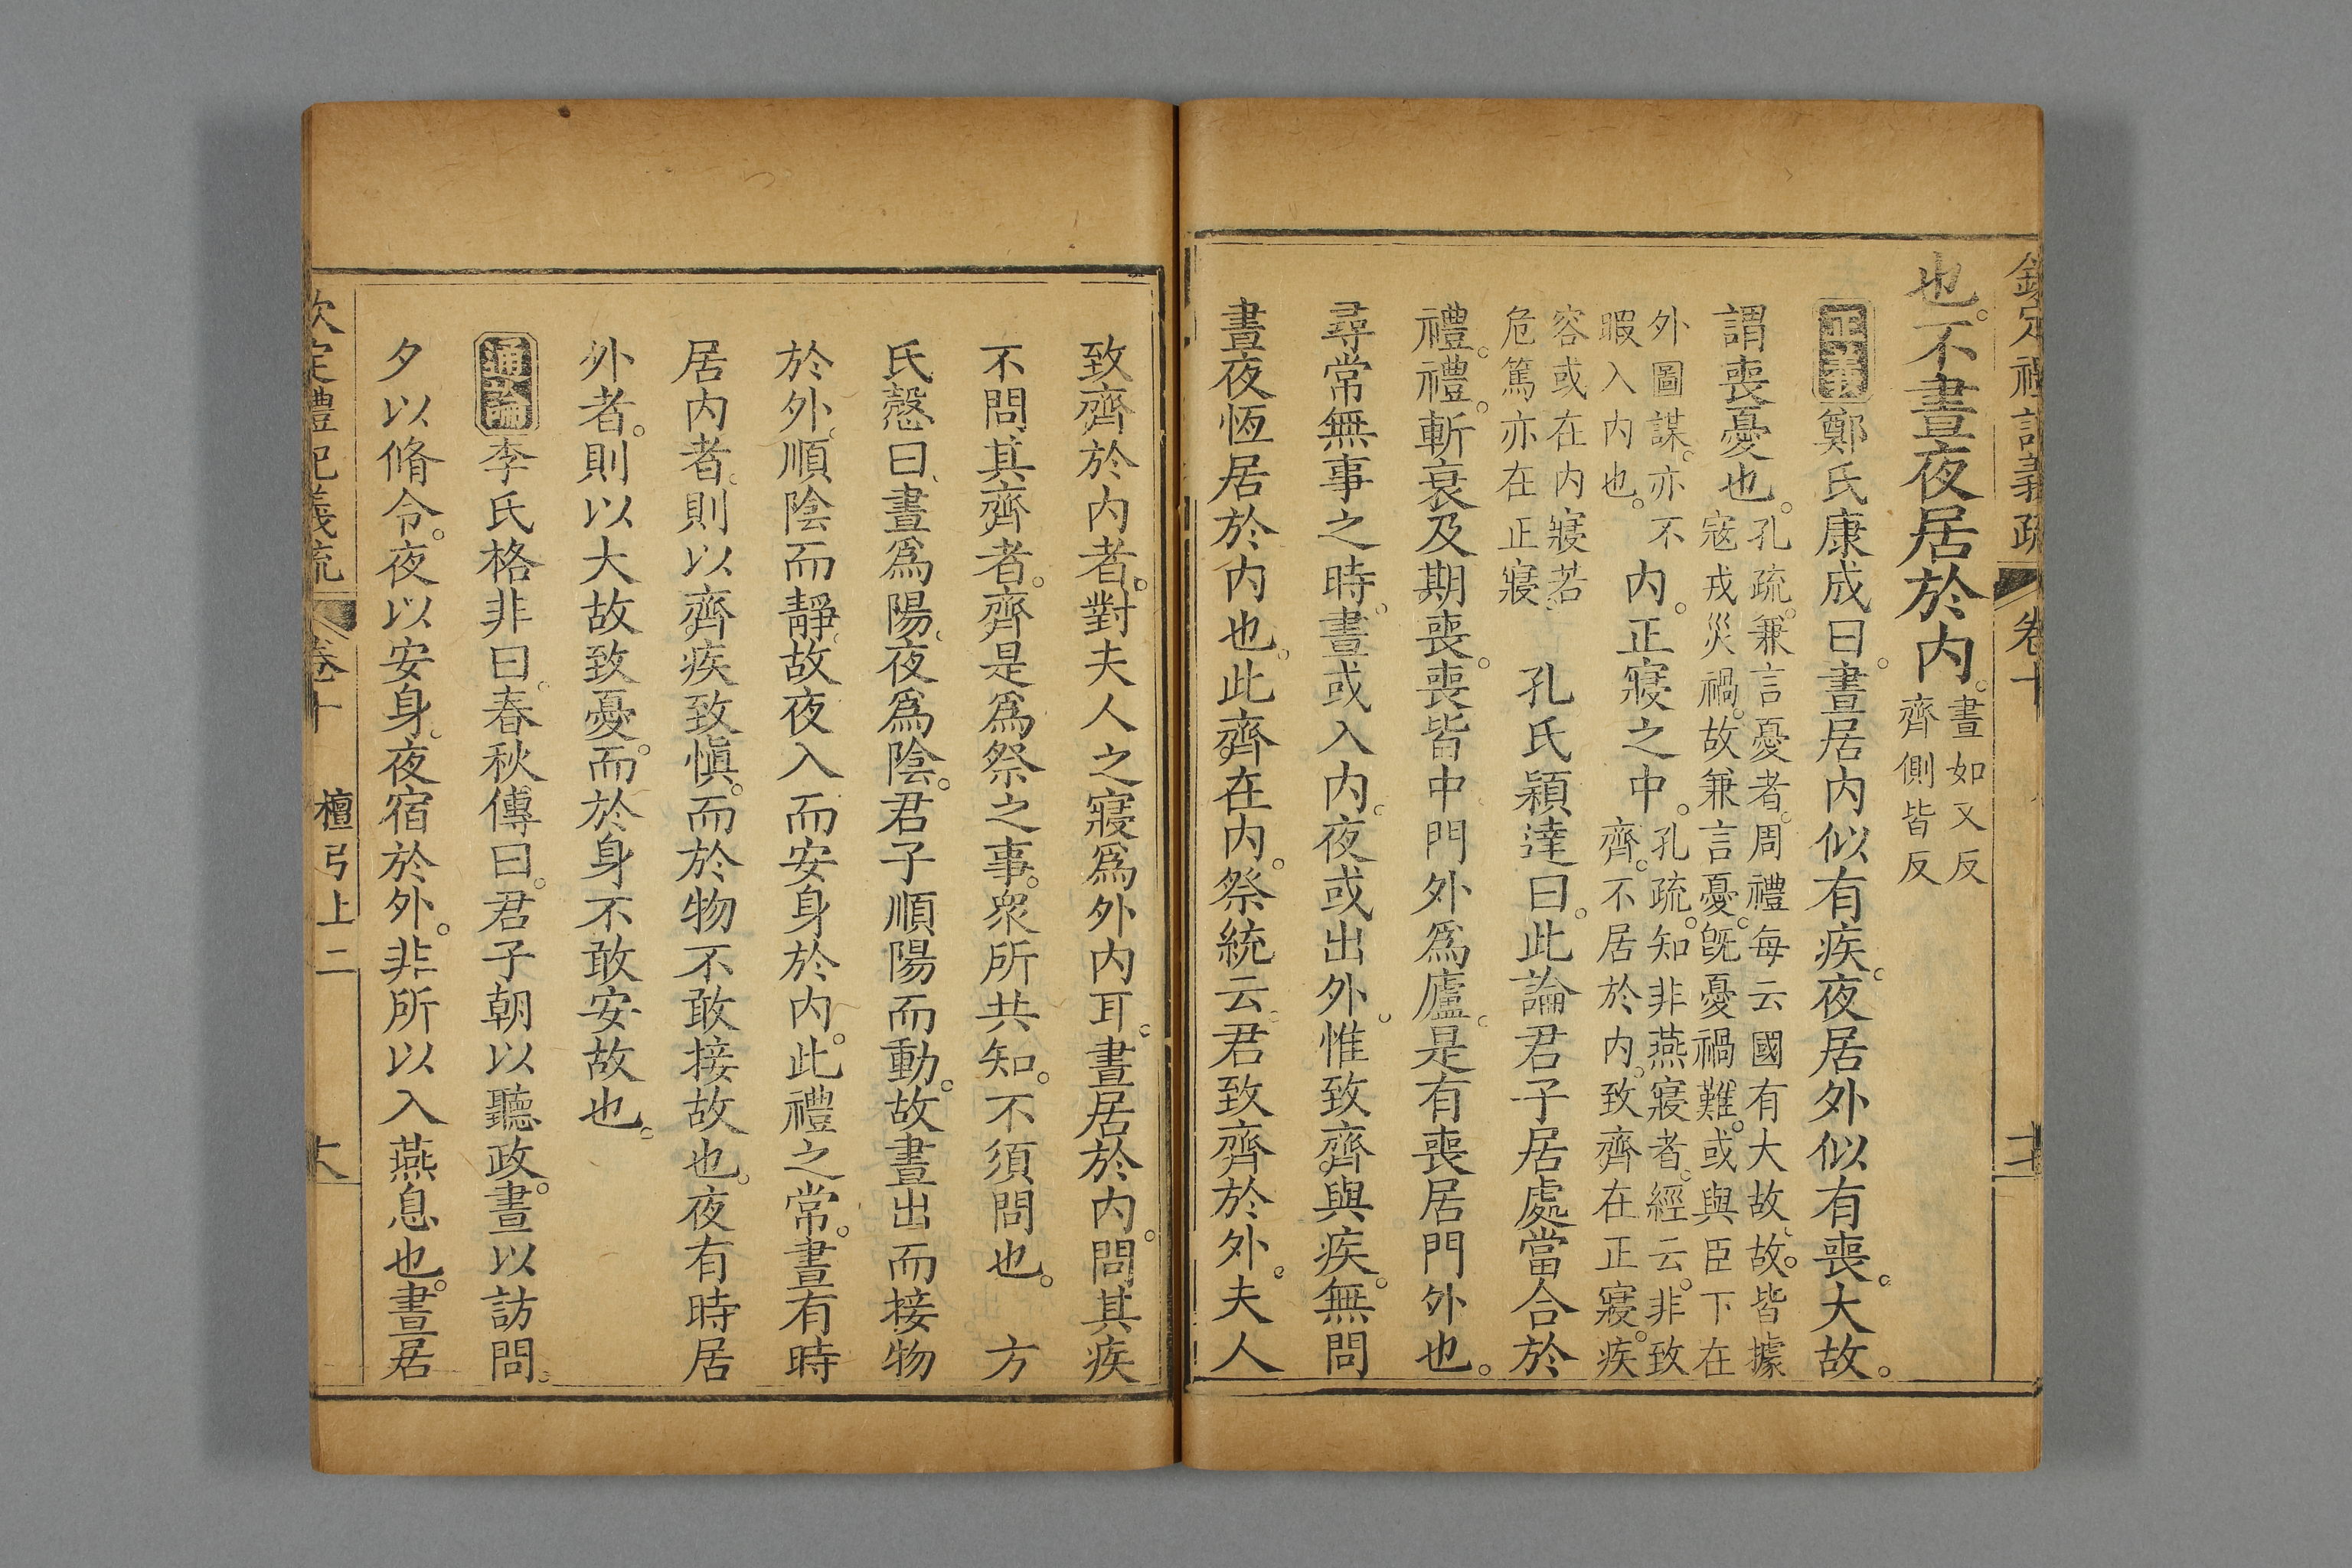 欽定禮記義疏 卷十
也。不晝夜居於内。晝如又反
齊側皆反
正義 鄭氏康成曰。晝居内似有疾。夜居外似有喪。大故。
謂喪憂也。孔疏。兼言憂者。周禮每云國有大故。故。皆據
寇戎災禍。故兼言憂。旣憂禍難。或與臣下在
外圖謀。亦不
暇入内也。
内。正寢之中。孔疏。知非燕寢者。經云。非致
齊。不居於内。致齊在正寢。疾
容或在内寢若
危篤亦在正寢。
孔氏穎達曰。此論君子居處當合於
禮。禮。斬衰及期喪。喪皆中門外爲廬。是有喪居門外也。
尋常無事之時。晝或入内。夜或出外。惟致齊與疾。無問
晝夜恆居於内也。此齊在内。祭統云。君致齊於外。夫人
致齊於内者。對夫人之寢爲外内耳。晝居於内。問其疾
不問其齊者。齊是爲祭之事。衆所共知。不須問也。 方
氏慤曰。晝爲陽。夜爲陰。君子順陽而動。故晝出而接物
於外。順陰而靜。故夜入而安身於内。此禮之常。晝有時
居内者。則以齊疾致愼。而於物不敢接故也。夜有時居
外者。則以大故致憂。而於身不敢安故也。
通論 李氏格非曰。春秋傳曰。君子朝以聽政。晝以訪問。
夕以脩令。夜以安身。夜宿於外。非所以入燕息也。晝居
欽定禮記義疏 卷十 檀弓上二